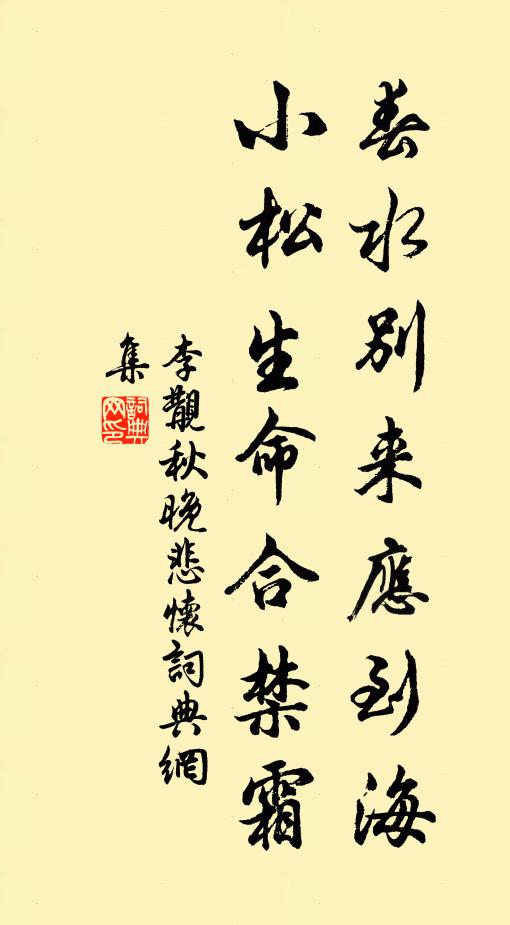 春水別来應到海
小松生命合禁霜
李觀秋晚悲懷詞典網
集
詞典網印